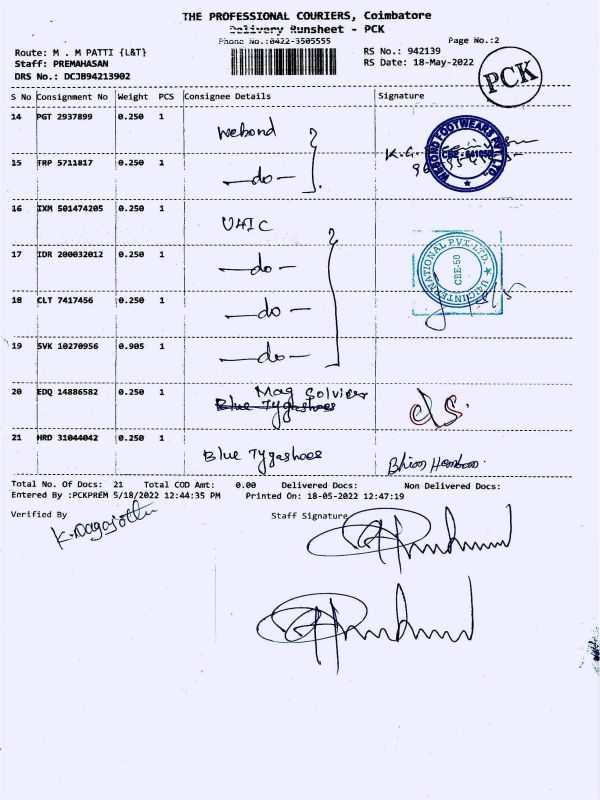 THE PROFESSIONAL COURIERS, Coimbatore
Delivery Runsheet - PCK
Phone No.:0422-3505555
Page No.:2
Route: M . M PATTI {L&T}
RS No.: 942139
Staff: PREMAHASAN
RS Date: 18-May-2022
DRS No.: DCJB94213902
PCK
S No Consignment No Weight PCS Consignee Details Signature
14 PGT 2937899 0.250 1 Webond
15 TRP 5711817 0.250 1 —do—
WEBOND FOOTWEARS PVT. LTD.
CBE - 641050
16 IXM 501474205 0.250 1 U4IC
17 IDR 200032012 0.250 1 —do—
U4IC INTERNATIONAL PVT. LTD.
CBE-50
18 CLT 7417456 0.250 1 —do—
19 SVK 10270956 0.905 1 —do—
20 EDQ 14886582 0.250 1 Mag Solvies
Blue Tygashoes
21 HRD 31044042 0.250 1 Blue Tygashoes
Total No. Of Docs: 21 Total COD Amt: 0.00 Delivered Docs: Non Delivered Docs:
Entered By :PCKPREM 5/18/2022 12:44:35 PM Printed On: 18-05-2022 12:47:19
Verified By Staff Signature